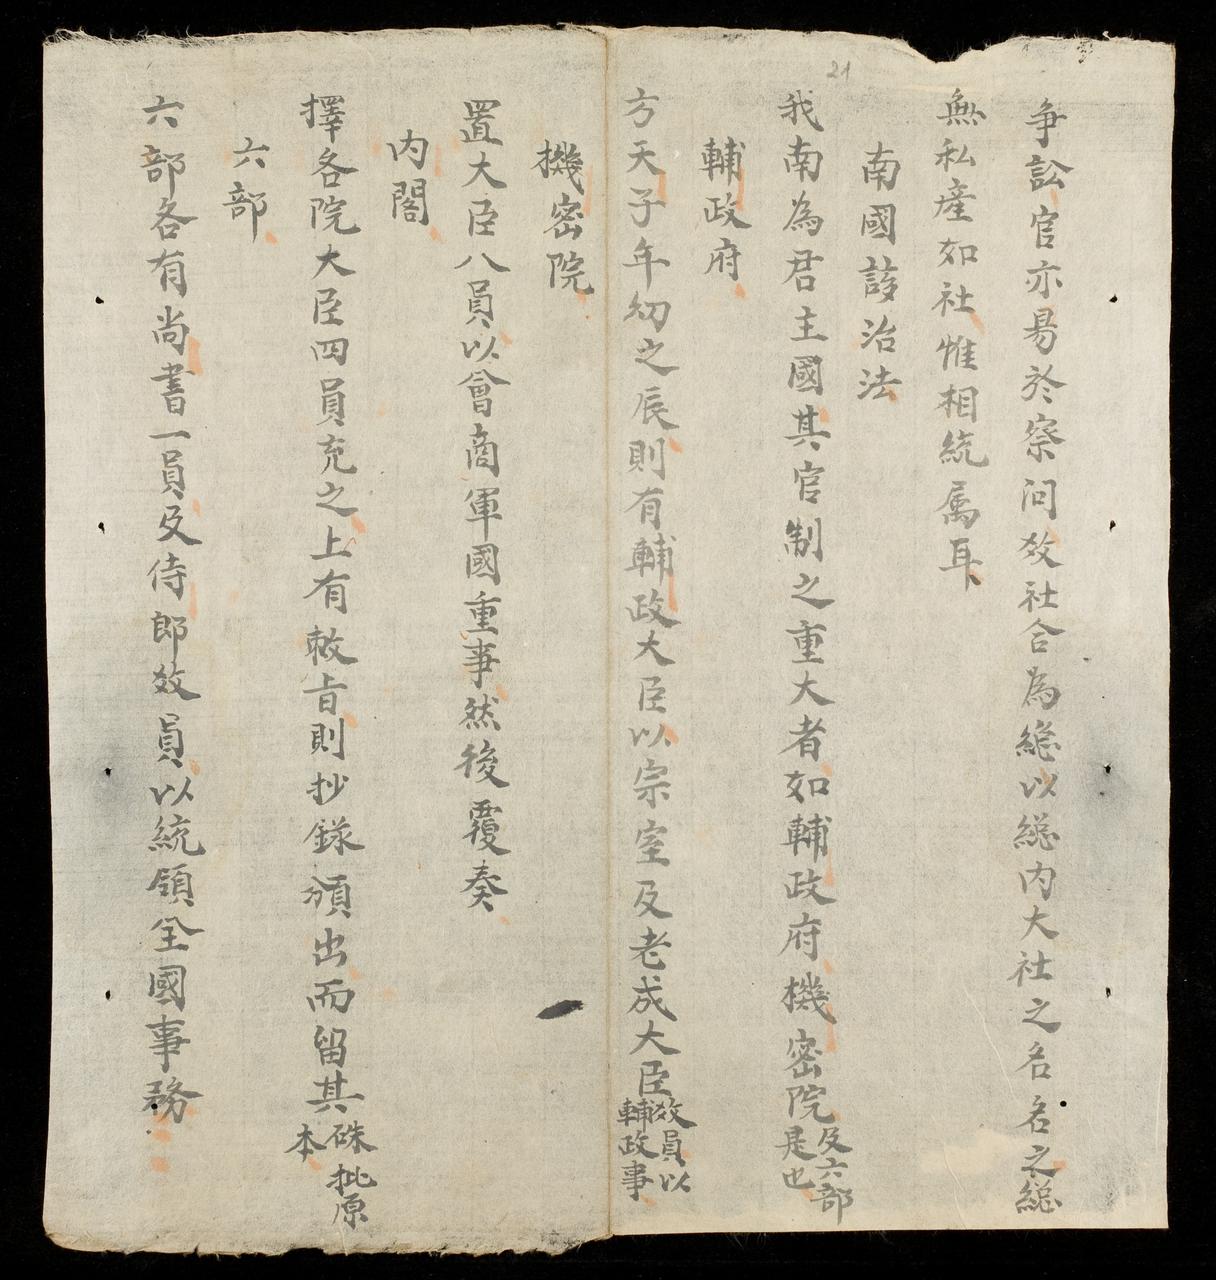 21
争訟官亦易於察问效社合為總以總内大社之名名之總
無私產如社惟相統属耳
南國該治法
我南為君主國其官制之重大者如輔政府機密院及六部是也
輔政府
方天子年幼之辰則有輔政大臣以宗室及老成大臣效員以輔政事
機密院
置大臣八員以會商軍國重事然後覆奏
内閣
擇各院大臣四員充之上有敕旨則抄錄頒出而留其硃批原本
六部
六部各有尚書一員及侍郎效員以統領全國事務